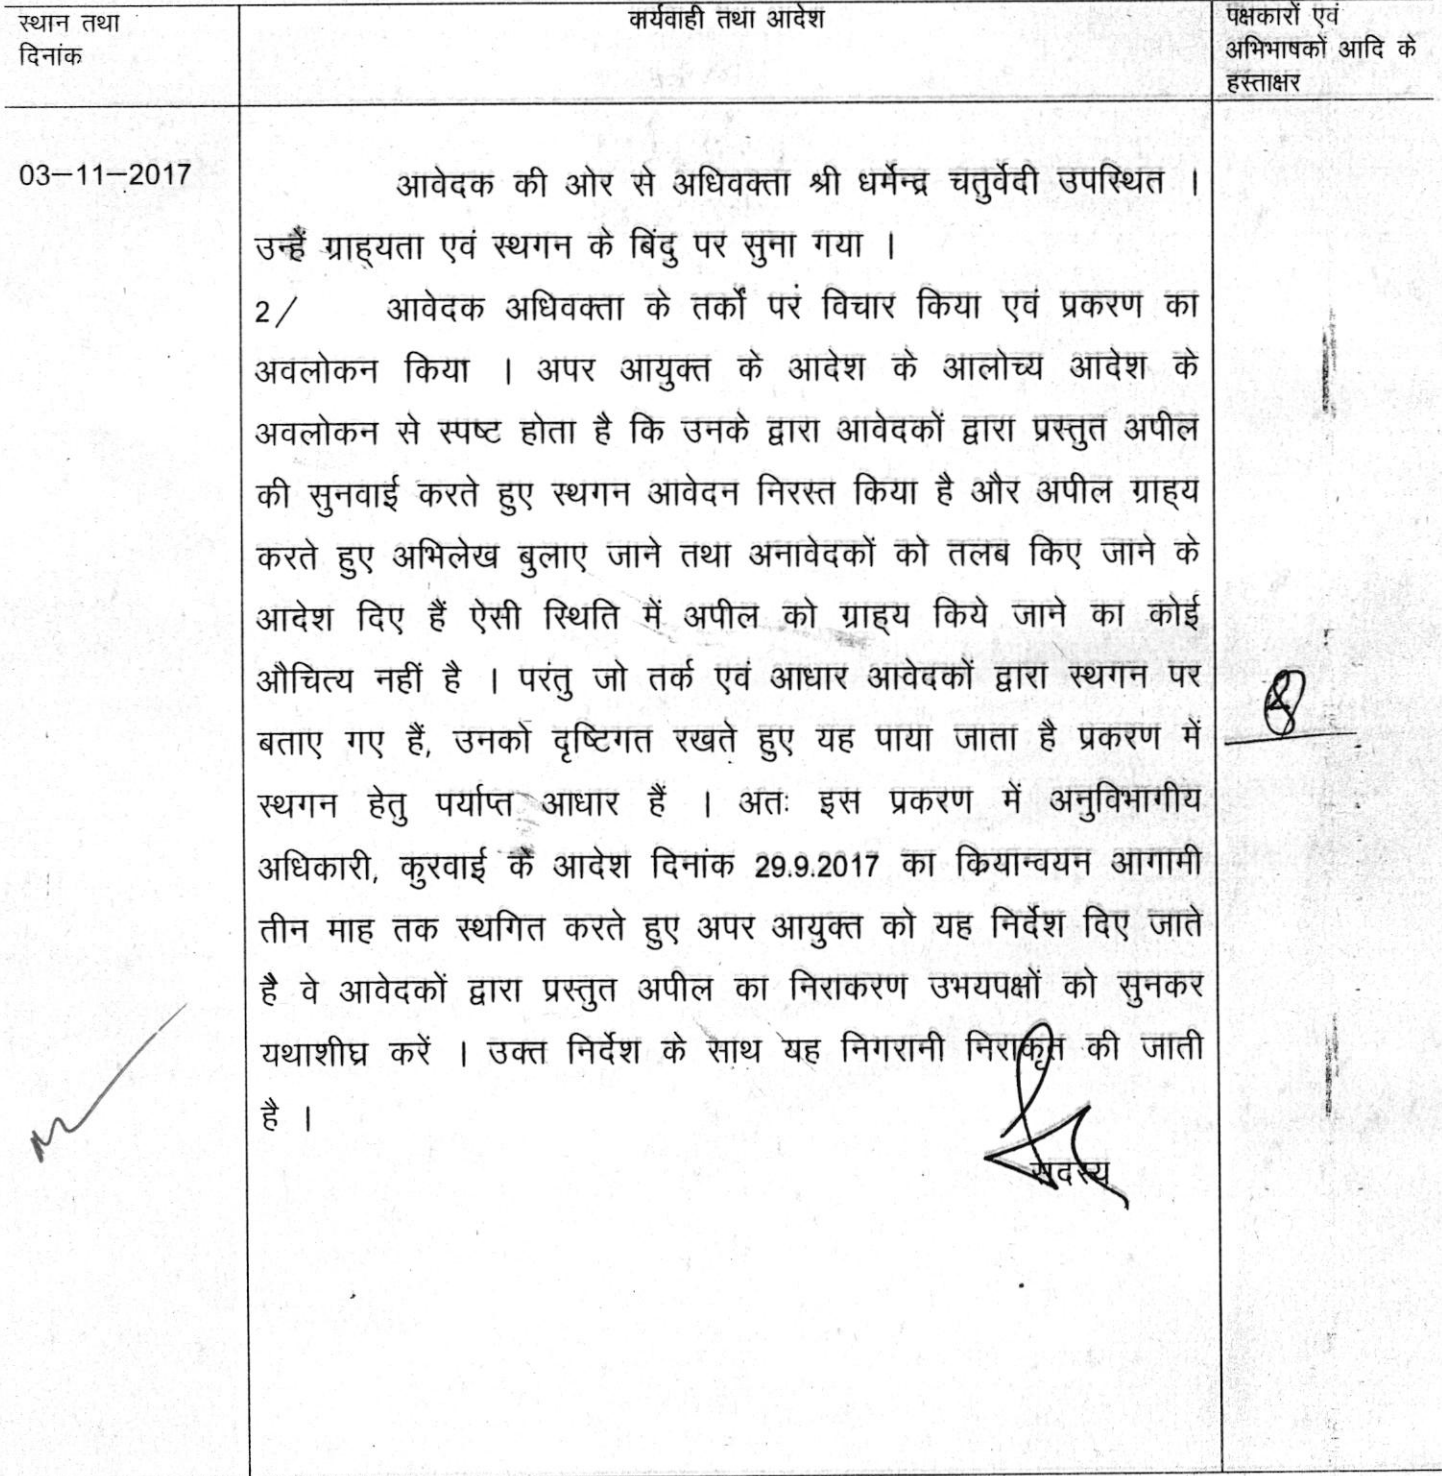 स्थान तथा
दिनांक
कार्यवाही तथा आदेश
पक्षकारों एवं
अभिभाषकों आदि के
हस्ताक्षर
03–11–2017
आवेदक की ओर से अधिवक्ता श्री धर्मेन्द्र चतुर्वेदी उपस्थित ।
उन्हें ग्राह्यता एवं स्थगन के बिंदु पर सुना गया ।
2/ आवेदक अधिवक्ता के तर्कों पर विचार किया एवं प्रकरण का
अवलोकन किया । अपर आयुक्त के आदेश के आलोच्य आदेश के
अवलोकन से स्पष्ट होता है कि उनके द्वारा आवेदकों द्वारा प्रस्तुत अपील
की सुनवाई करते हुए स्थगन आवेदन निरस्त किया है और अपील ग्राह्य
करते हुए अभिलेख बुलाए जाने तथा अनावेदकों को तलब किए जाने के
आदेश दिए हैं ऐसी स्थिति में अपील को ग्राह्य किये जाने का कोई
औचित्य नहीं है । परंतु जो तर्क एवं आधार आवेदकों द्वारा स्थगन पर
बताए गए हैं, उनको दृष्टिगत रखते हुए यह पाया जाता है प्रकरण में
स्थगन हेतु पर्याप्त आधार हैं । अतः इस प्रकरण में अनुविभागीय
अधिकारी, कुरवाई के आदेश दिनांक 29.9.2017 का कियान्वयन आगामी
तीन माह तक स्थगित करते हुए अपर आयुक्त को यह निर्देश दिए जाते
है वे आवेदकों द्वारा प्रस्तुत अपील का निराकरण उभयपक्षों को सुनकर
यथाशीघ्र करें । उक्त निर्देश के साथ यह निगरानी निराकृत की जाती
है ।
सदस्य